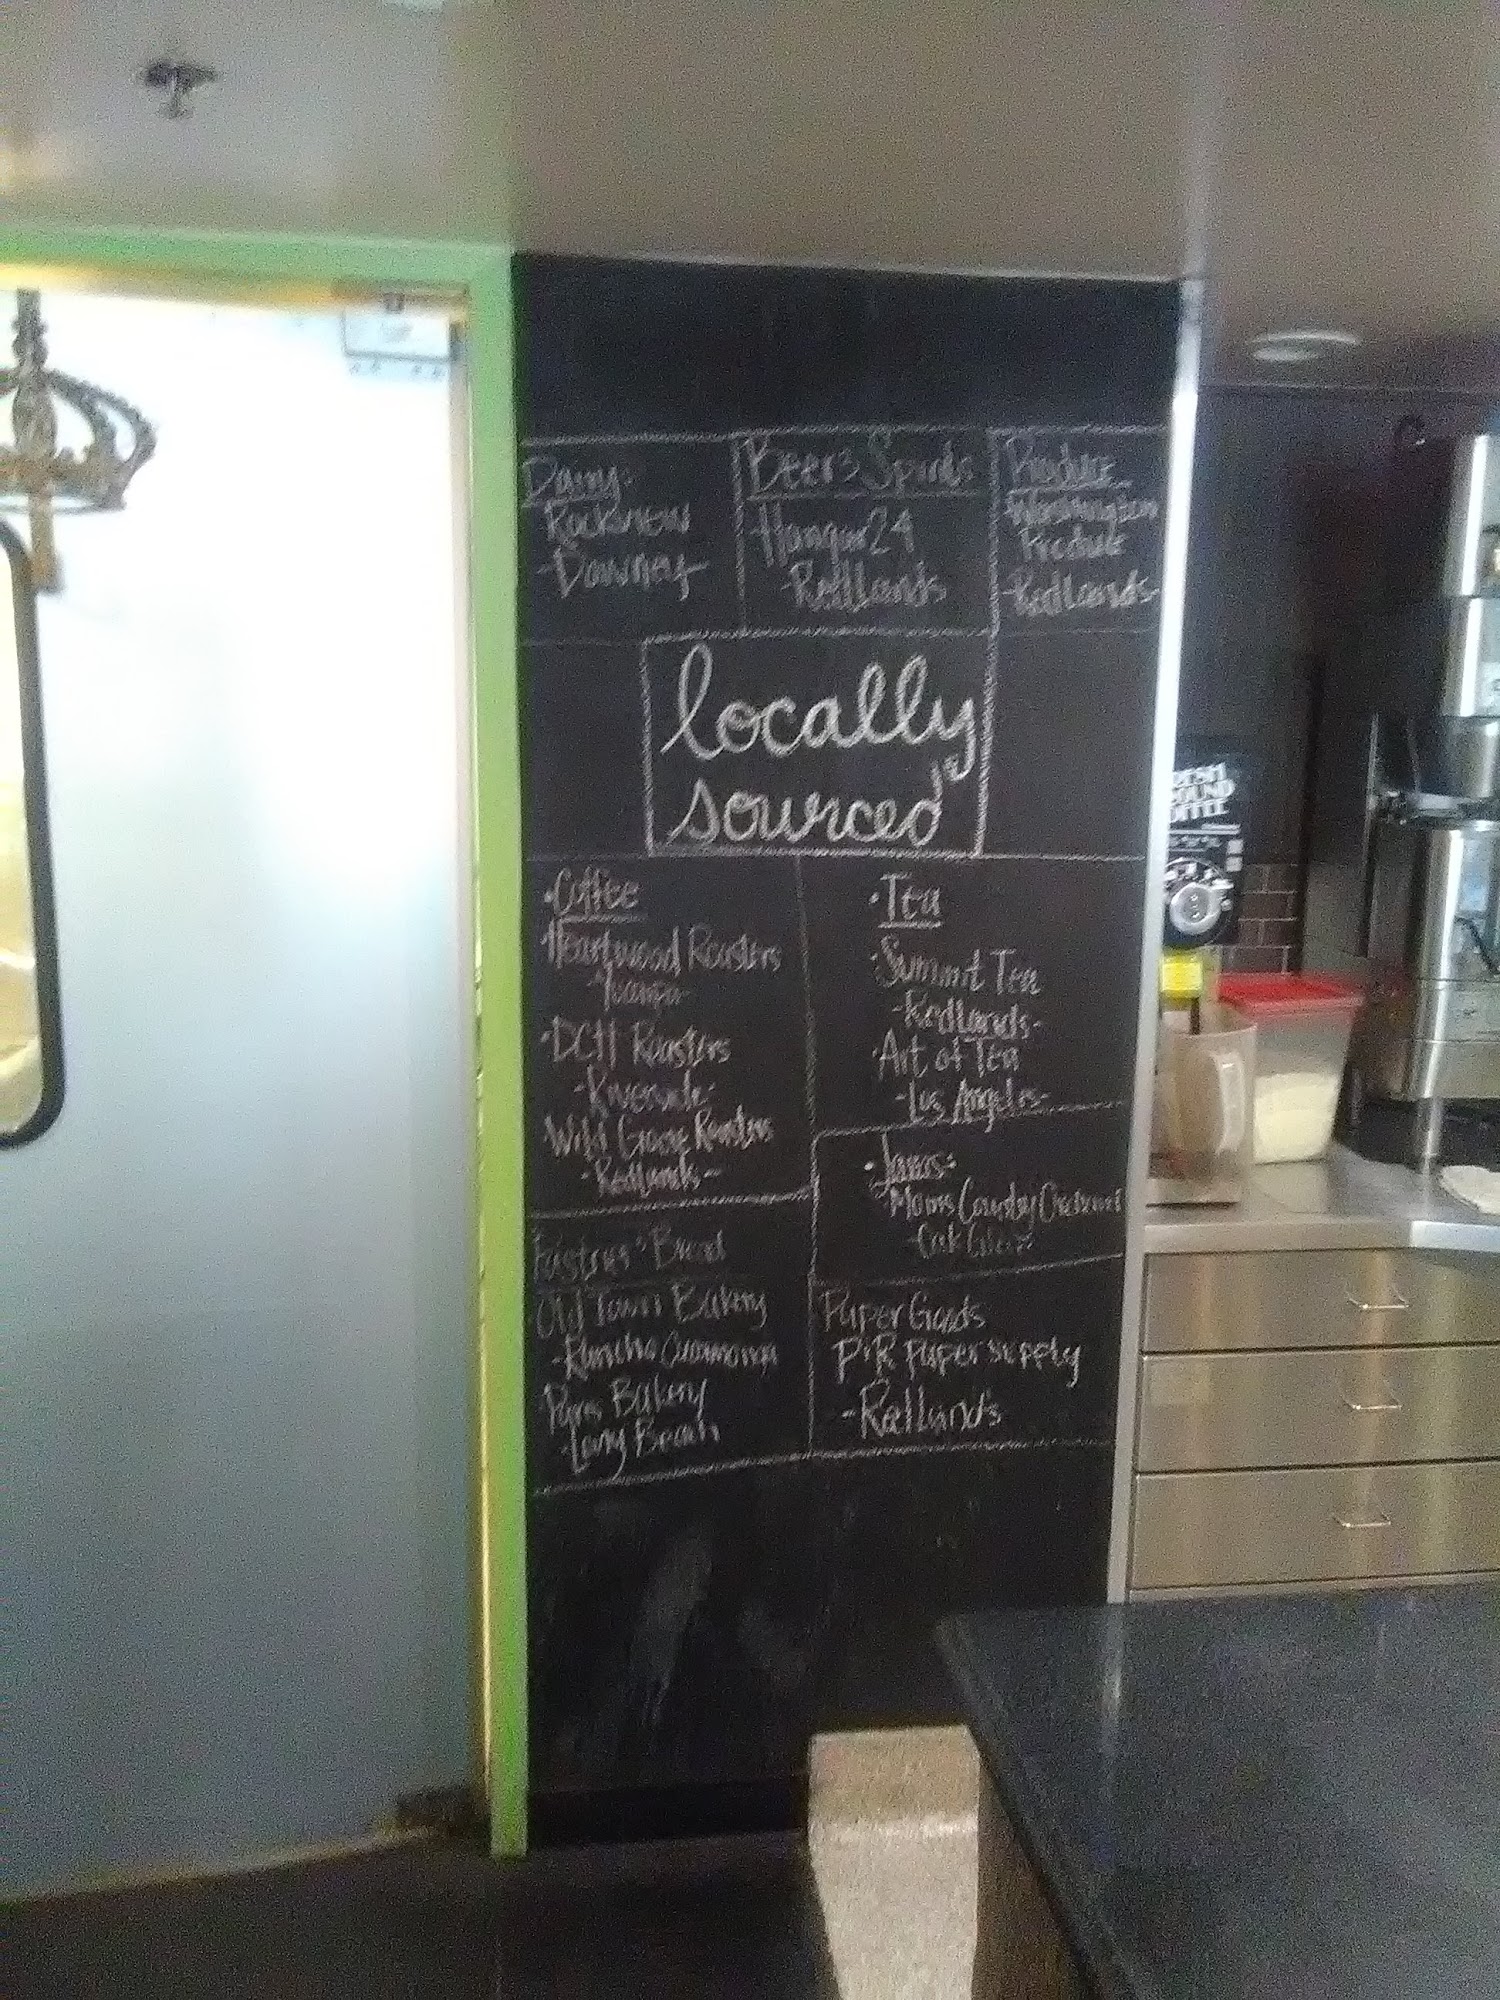 Dairy:
Rockview
-Downey-
Beer & Spirits
Hangar 24
-Redlands
Produce
Washington
Produce
-Redlands-
locally
sourced
•Coffee
Heartwood Roasters
-Yucaipa-
•DCH Roasters
-Riverside-
Wild Goose Roasters
-Redlands-
•Tea
•Summit Tea
-Redlands-
•Art of Tea
-Los Angeles-
•Jams:
Moms Country Orchard
-Oak Glen-
Pastries & Bread
Old Town Bakery
-Rancho Cucamonga
Bakery
-Long Beach
Paper Goods
P&R paper supply
-Redlands